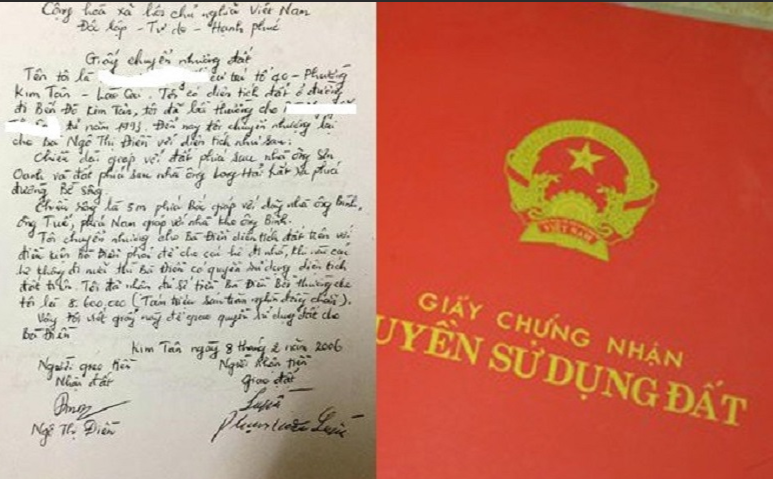 Cộng hoà xã hội chủ nghĩa Việt Nam
Độc lập - Tự do - Hạnh phúc
Giấy chuyển nhường đất
Tên tôi là cư trú tổ 40 - Phường
Kim Tân - Lào Cai. Tôi có diện tích đất ở đường
đi Bến Đò Kim Tân, tôi đã bồi thường cho
từ năm 1993. Đến nay tôi chuyển nhượng lại
cho bà Ngô Thị Điền với diện tích như sau:
Chiều dài giáp với đất phía sau nhà ông Sơn
Oanh và đất phía sau nhà ông Long Hải Kắt xa phía
đường Bờ sông.
Chiều rộng là 5m phía Bắc giáp với nhà ông Bình,
ông Tuế, phía Nam giáp với nhà kho ông Bình.
Tôi chuyển nhượng cho Bà Điền diện tích đất trên với
điều kiện Bà Điền phải để cho các hộ đi nhờ, khi nào các
hộ không đi nữa thì Bà Điền có quyền sử dụng diện tích
đất trên. Tôi đã nhận đủ số tiền Bà Điền Bồi thường cho
tôi là 8.600,000 (Tám triệu sáu trăm nghìn đồng chẵn).
Vậy tôi viết giấy này để giao quyền sử dụng đất cho
Bà Điền
Kim Tân ngày 8 tháng 2 năm 2006
Người giao tiền Người nhận tiền
Nhận đất Giao đất
Ngô Thị Điền
VIỆT NAM
GIẤY CHỨNG NHẬN
UYỀN SỬ DỤNG ĐẤT